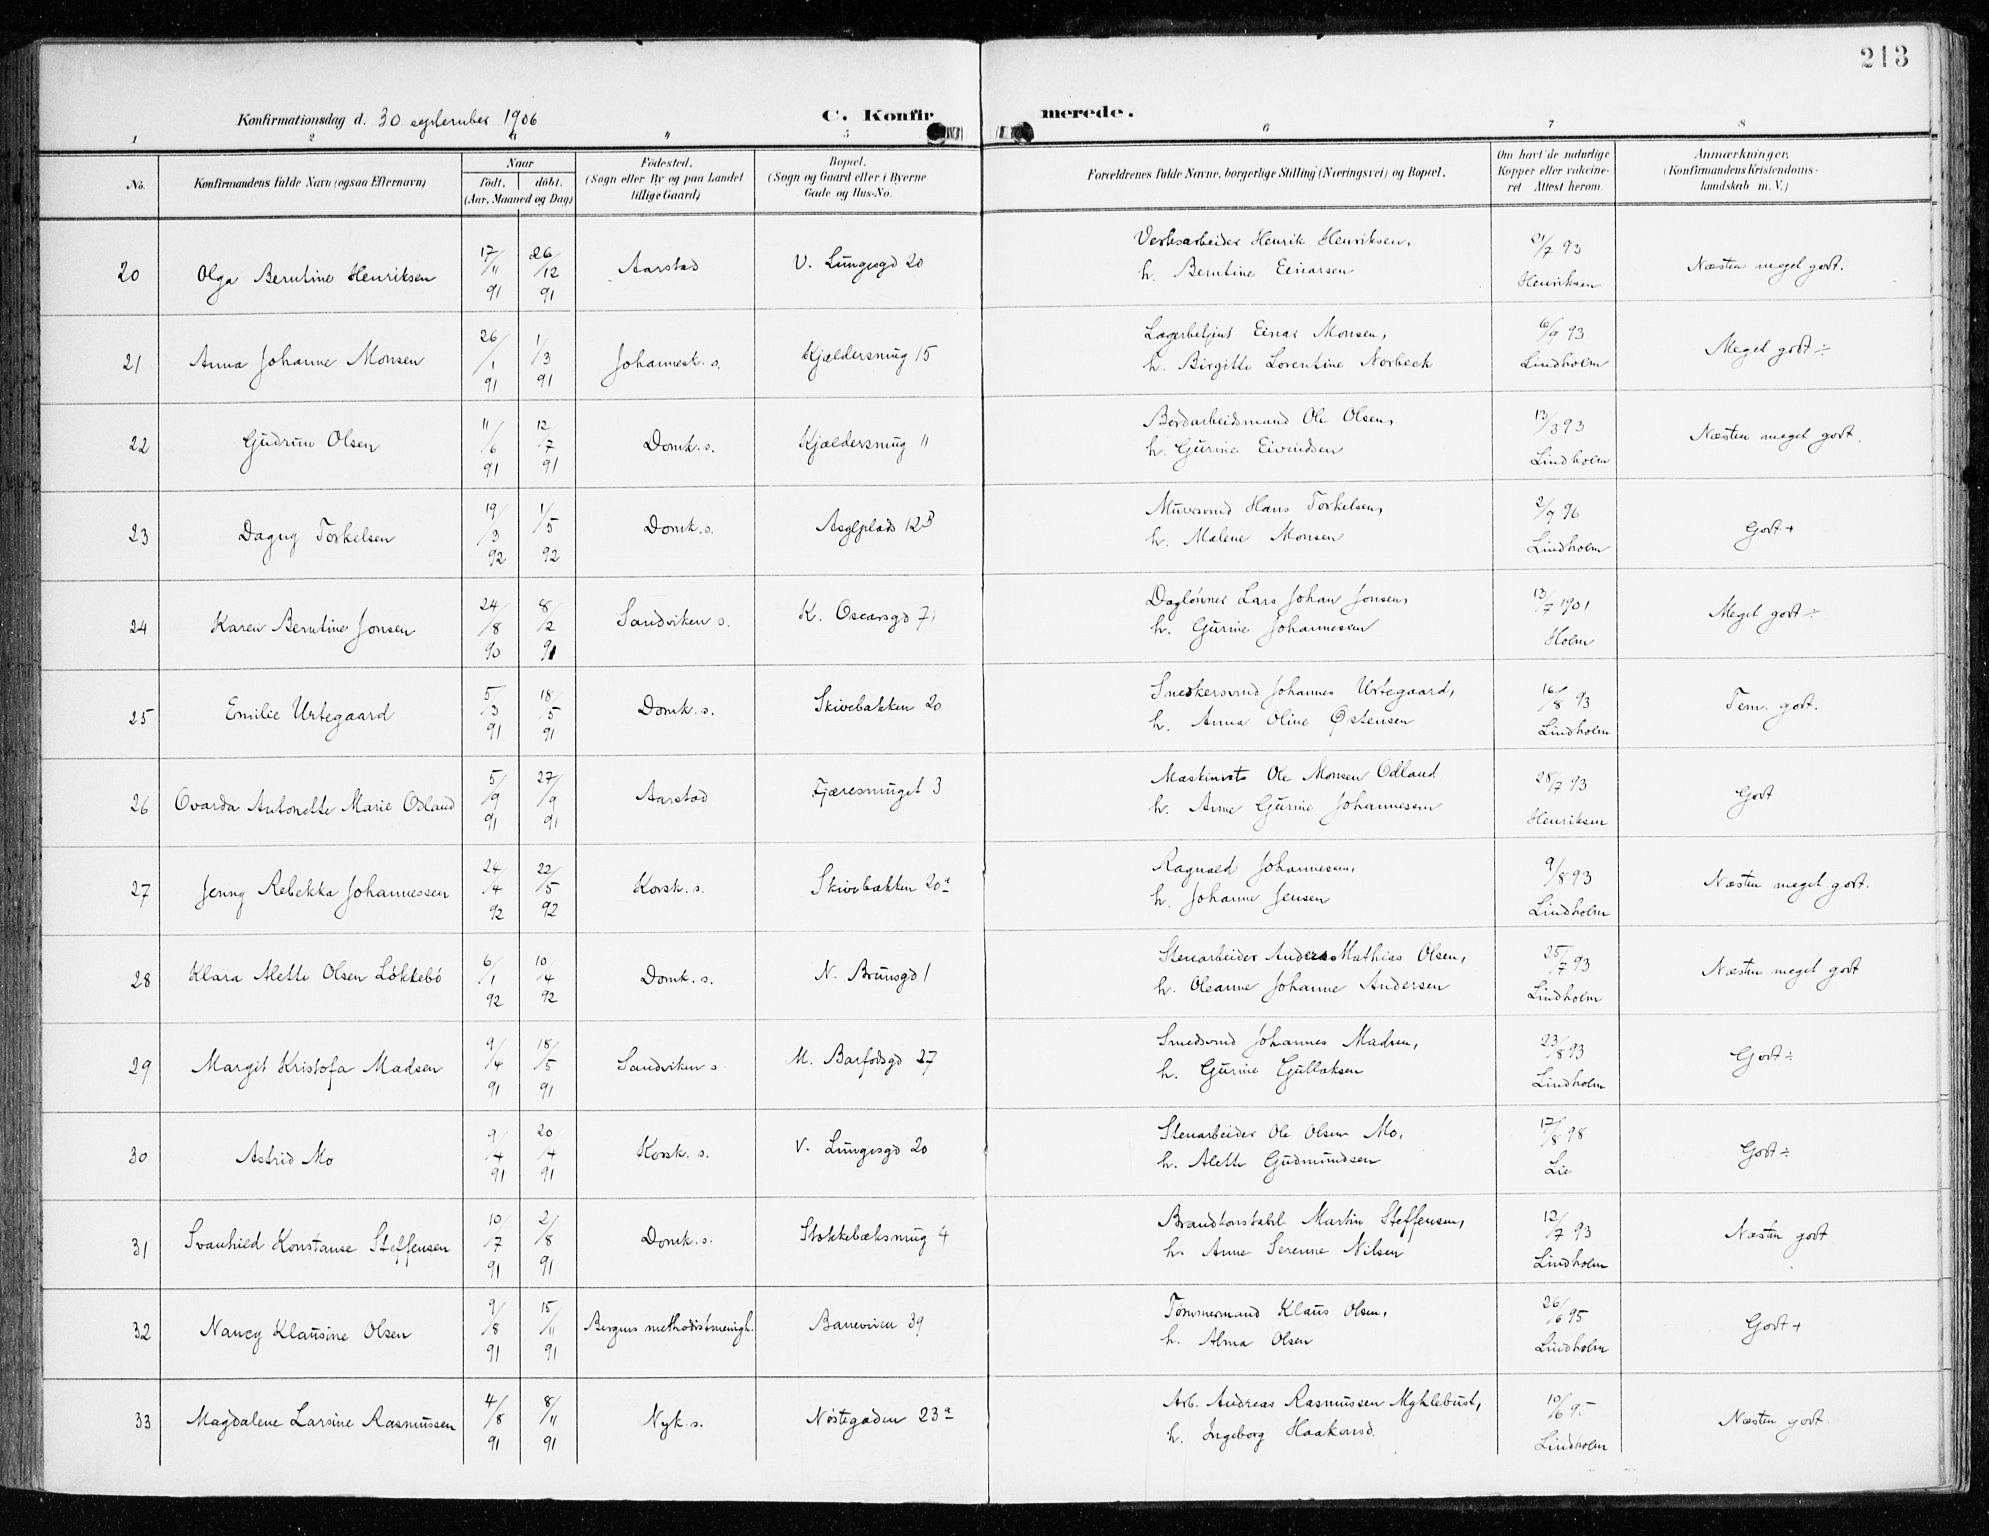 213
Konfirmationsdag d. 30 september 1906
C. Konfirmerede.
1 2 " " 5 6 7 8
No. Konfirmandens fulde Navn (ogsaa Efternavn) Naar født. døbt. (Aar, Maaned og Dag) Fødested. (Sogn eller By og paa Landet tillige Gaard) Bopæl. (Sogn og Gaard eller i Byerne Gade og Hus-No. Forældrenes fulde Navne, borgerlige Stilling (Næringsvei) og Bopæl. Om havt de naturlige Kopper eller vakcineret Attest herom. Anmærkninger. (Konfirmandens Kristendomskundskab m. V.)
20 Olga Berntine Henriksen 17/11 91 26/12 91 Aarstad V. Lungesgd 20 Verksarbeider Henrik Henriksen, h. Berntine Einarsen 21/7 93 Henriksen Næsten meget godt.
21 Anna Johanne Monsen 26/1 91 1/3 91 Johannesk. s. Kjældersmug 15 Lagerbetjent Einar Monsen, h. Birgitte Lorentine Norbeck 6/9 93 Lindholm Meget godt ÷
22 Gudrun Olsen 11/6 91 12/7 91 Domk. s. Kjældersmug 11 Bordarbeidsmand Ole Olsen, h. Gurine Eivindsen 13/3 93 Lindholm Næsten meget godt.
23 Dagny Torkelsen 19/3 92 1/5 92 Domk. s. Asylplads 12 b Mursvend Hans Torkelsen, h. Malene Monsen 2/9 96 Lindholm Godt +
24 Karen Berntine Jonsen 24/8 90 8/2 91 Sandviken s. K. Oscarsgd 71 Dagl­ønner Lars Johan Jonsen, h. Gurine Johannesen 13/7 1901 Holm Meget godt ÷
25 Emilie Urtegaard 5/3 91 18/5 91 Domk. s. Skivebakken 20 Snedkersvend Johannes Urtegaard, h. Anna Oline Østensen 16/8 93 Lindholm Tem. godt.
26 Ovarda Antonette Marie Odland 5/9 91 27/9 91 Aarstad Fjæresmuget 3 Maskinists Ole Monsen Odland h. Anne Gurine Johannessen 28/7 93 Henriksen Godt
27 Jenny Rebekka Johannessen 24/4 92 22/5 92 Korsk. s. Skivebakken 20 a Ragnald Johannesen, h. Johanne Jensen 9/8 93 Lindholm Næsten meget godt.
28 Klara Alette Olsen Løktebø 6/1 92 10/4 92 Domk. s. N. Brunsgd 1 Stenarbeider Anders Mathias Olsen, h. Oleanne Johanne Andersen 25/7 93 Lindholm Næsten meget godt
29 Margit Kristofa Madsen 9/4 91 18/5 91 Sandviken s M. Barfodsgd 27 Smedsvend Johannes Madsen, h. Gurine Gullaksen 23/8 93 Lindholm Godt ÷
30 Astrid Mo 9/4 91 20/4 91 Korsk. s. V. Lungesgd 20 Stenarbeider Ole Olsen Mo, h. Alette Gudmundsen 17/8 98 Lie Godt ÷
31 Svanhild Konstanse Steffensen 10/7 91 2/8 91 Domk. s. Stokkebæksmug 4 Brandkonstabel Martin Steffensen, h. Anne Serenne Nilsen 12/7 93 Lindholm Næsten godt
32 Nancy Klausine Olsen 9/8 91 15/11 91 Bergens methodistmenigh. Baneveien 39 Tømmermand Klaus Olsen, h. Alma Olsen 26/6 95 Lindholm Godt +
33 Magdalene Larsine Rasmussen 4/8 91 8/11 91 Nyk. s. Nøstegaden 23 a Arb. Andreas Rasmussen Myklebust, h. Ingeborg Haakonsd. 10/6 95 Lindholm Næsten godt.